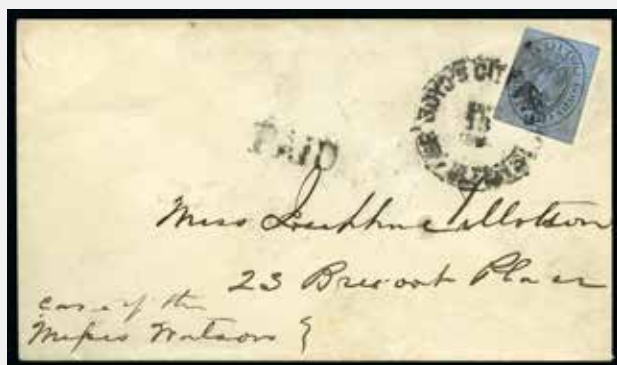 BOYD'S CIT
PAID
Miss Josephine Tillotson
23 Brevoort Place
care of the
Misses Watson